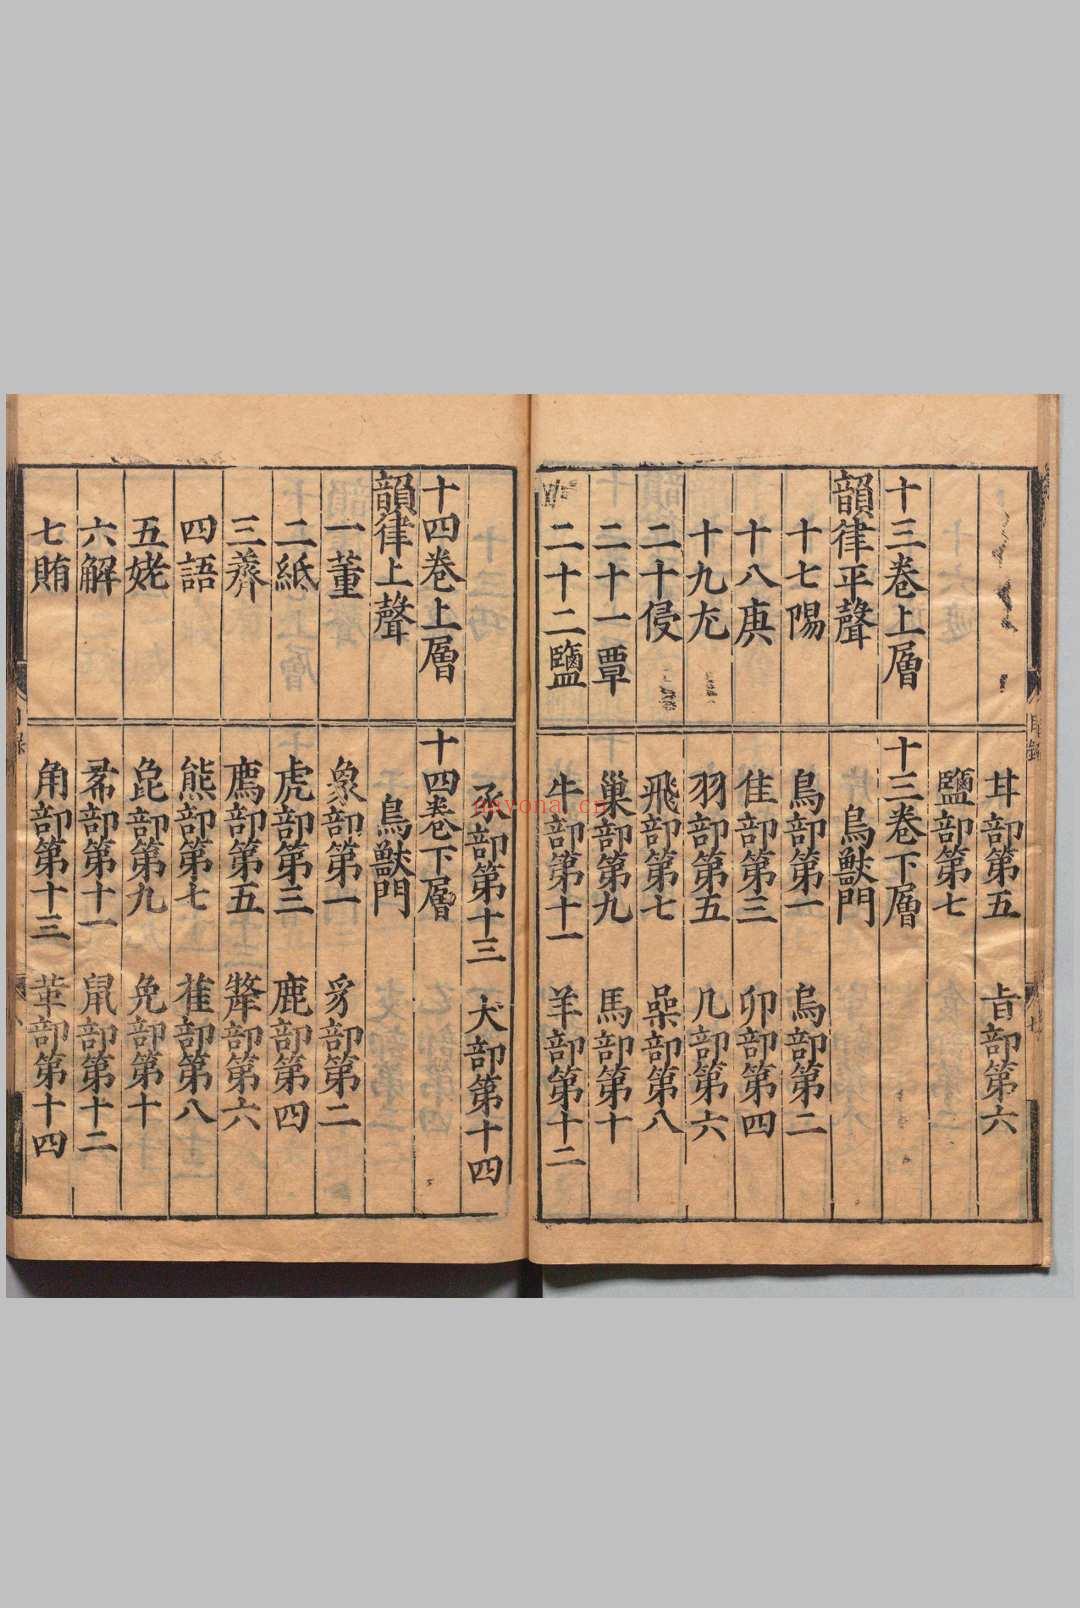 十三卷上層
韻律平聲
十七陽
十八庚
十九尤
二十侵
二十一覃
二十二鹽
甘部第五
旨部第六
鹽部第七
十三卷下層
鳥獸門
鳥部第一
烏部第二
隹部第三
卵部第四
羽部第五
几部第六
飛部第七
喿部第八
巢部第九
馬部第十
牛部第十一
羊部第十二
十四卷上層
韻律上聲
一董
二紙
三薺
四語
五姥
六解
七賄
豕部第十三
犬部第十四
十四卷下層
鳥獸門
象部第一
豸部第二
虎部第三
鹿部第四
廌部第五
犛部第六
熊部第七
萑部第八
㲋部第九
兔部第十
㣇部第十一
鼠部第十二
角部第十三
革部第十四
目錄
nayona.cn